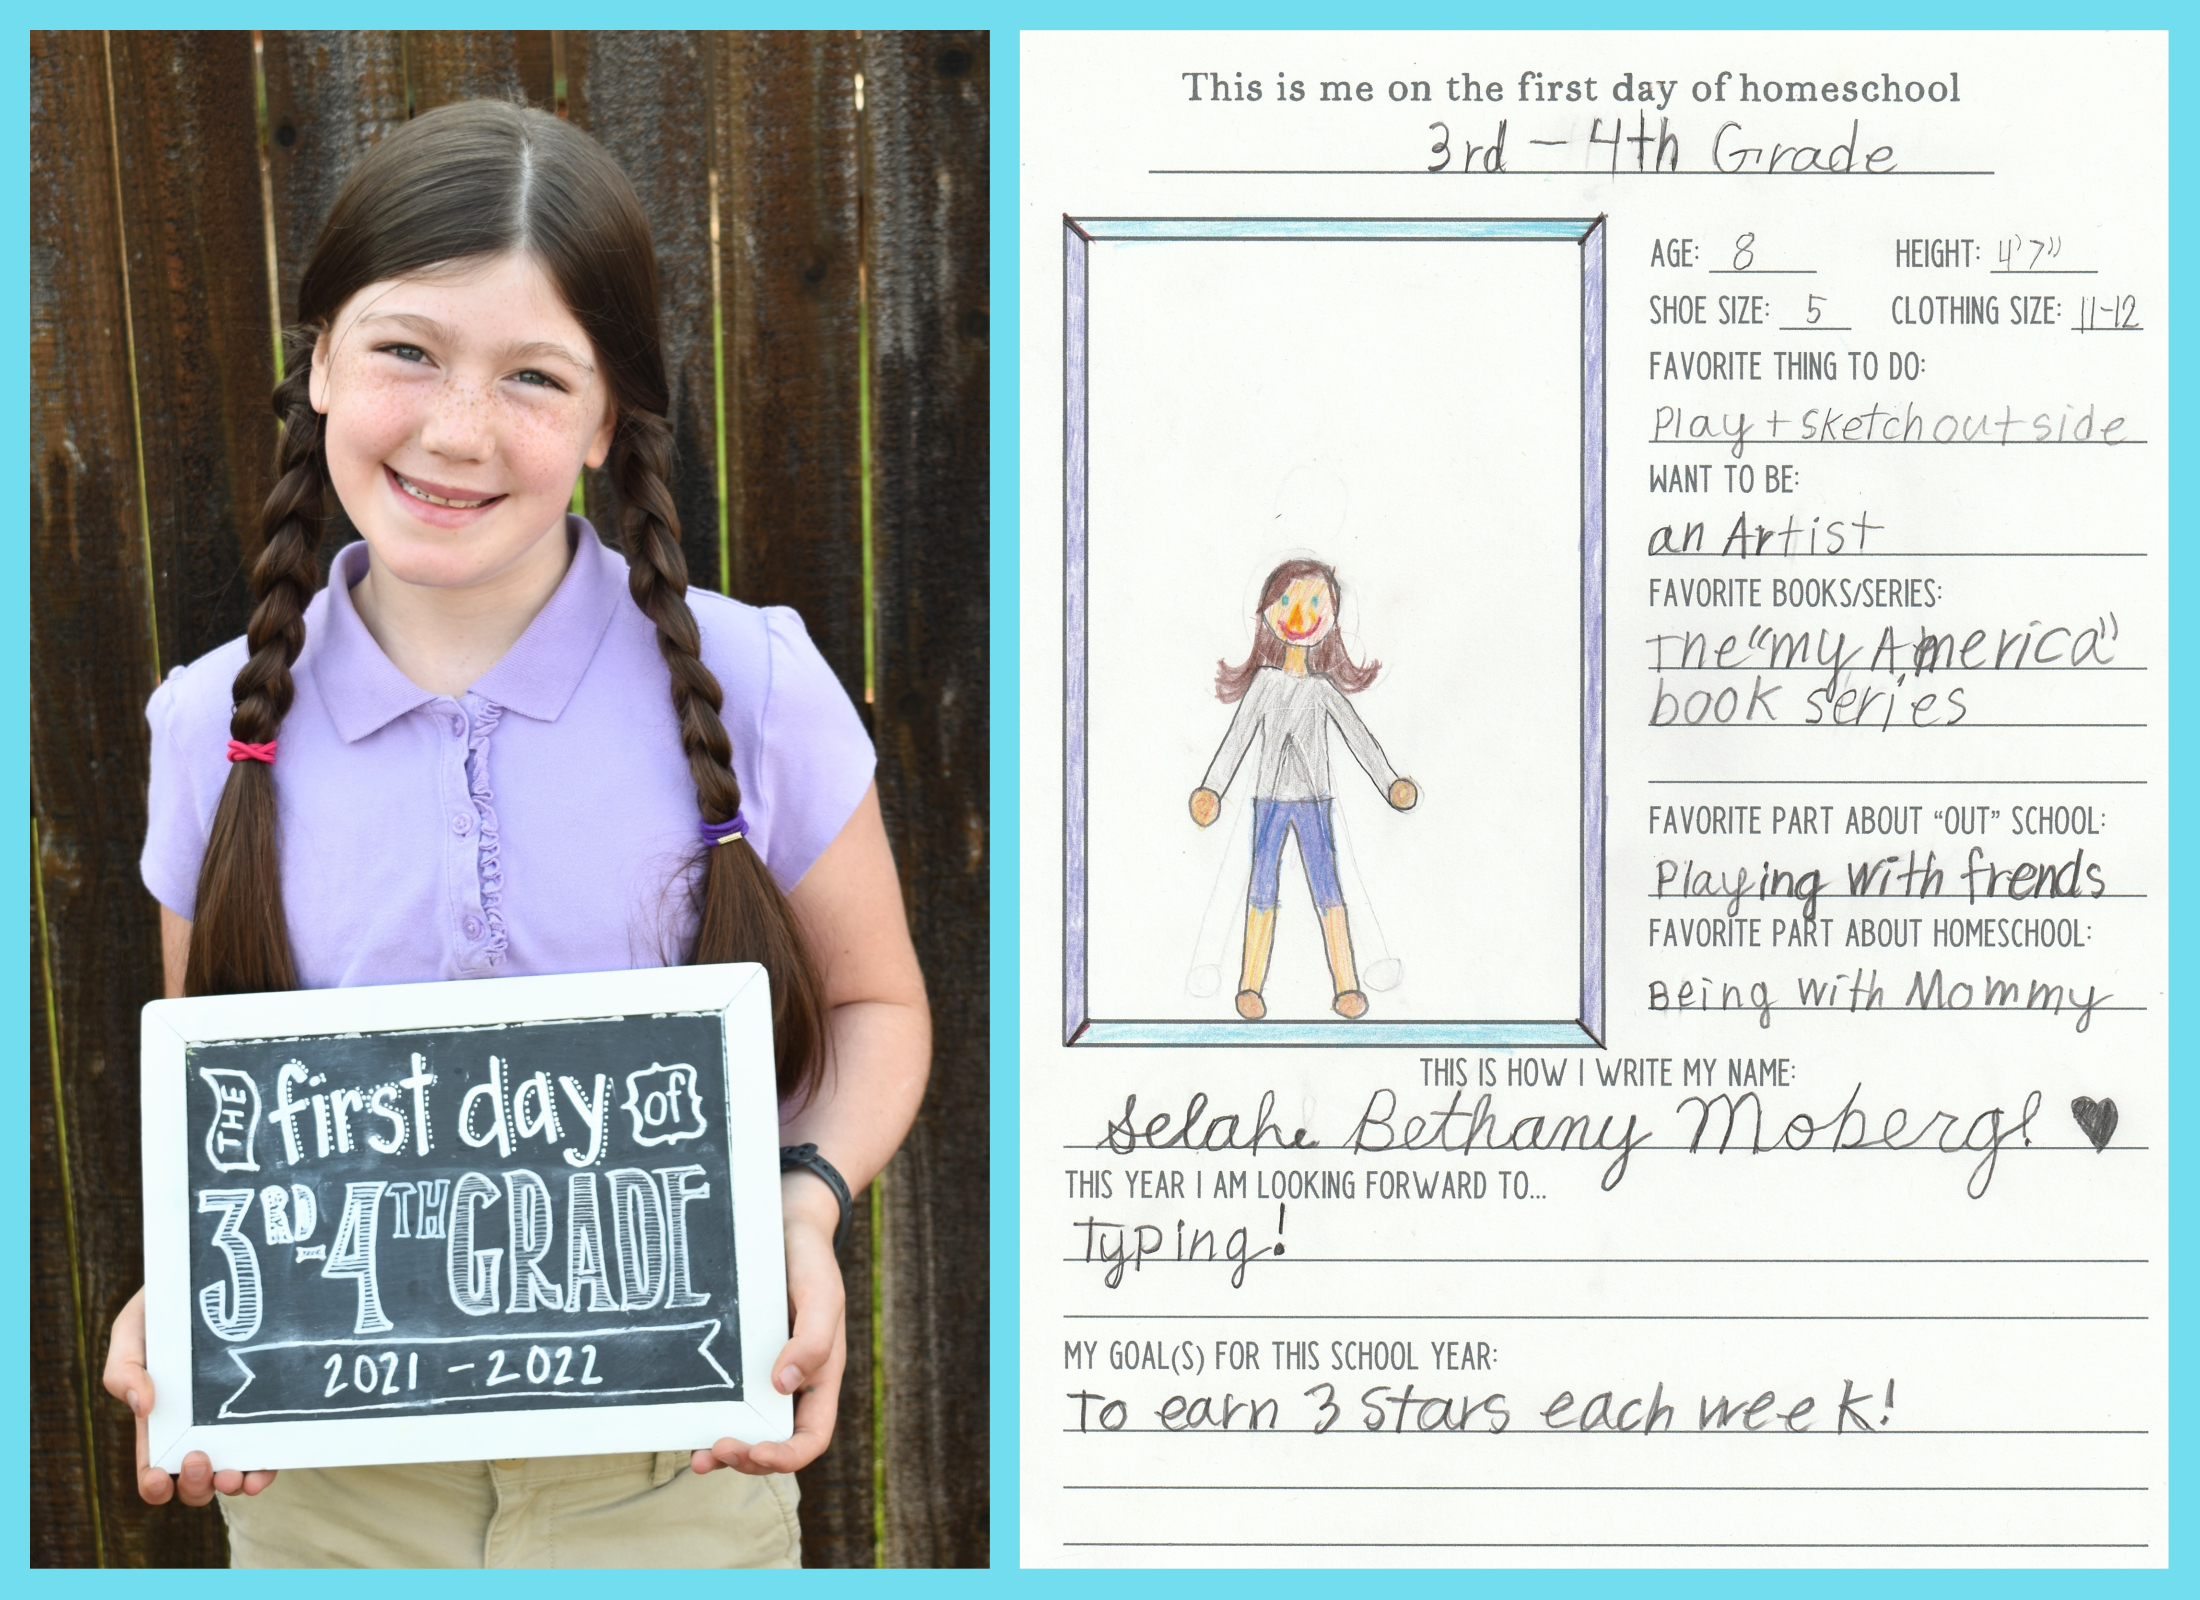 THE first day of
3RD-4TH GRADE
2021 - 2022
This is me on the first day of homeschool
3rd - 4th Grade
AGE: 8 HEIGHT: 4'7"
SHOE SIZE: 5 CLOTHING SIZE: 11-12
FAVORITE THING TO DO:
Play + sketch outside
WANT TO BE:
an Artist
FAVORITE BOOKS/SERIES:
The "my America"
book series
FAVORITE PART ABOUT “OUT” SCHOOL:
Playing with frends
FAVORITE PART ABOUT HOMESCHOOL:
Being with Mommy
THIS IS HOW I WRITE MY NAME:
Selah Bethany Moberg! ♥
THIS YEAR I AM LOOKING FORWARD TO...
Typing!
MY GOAL(S) FOR THIS SCHOOL YEAR:
To earn 3 Stars each week!